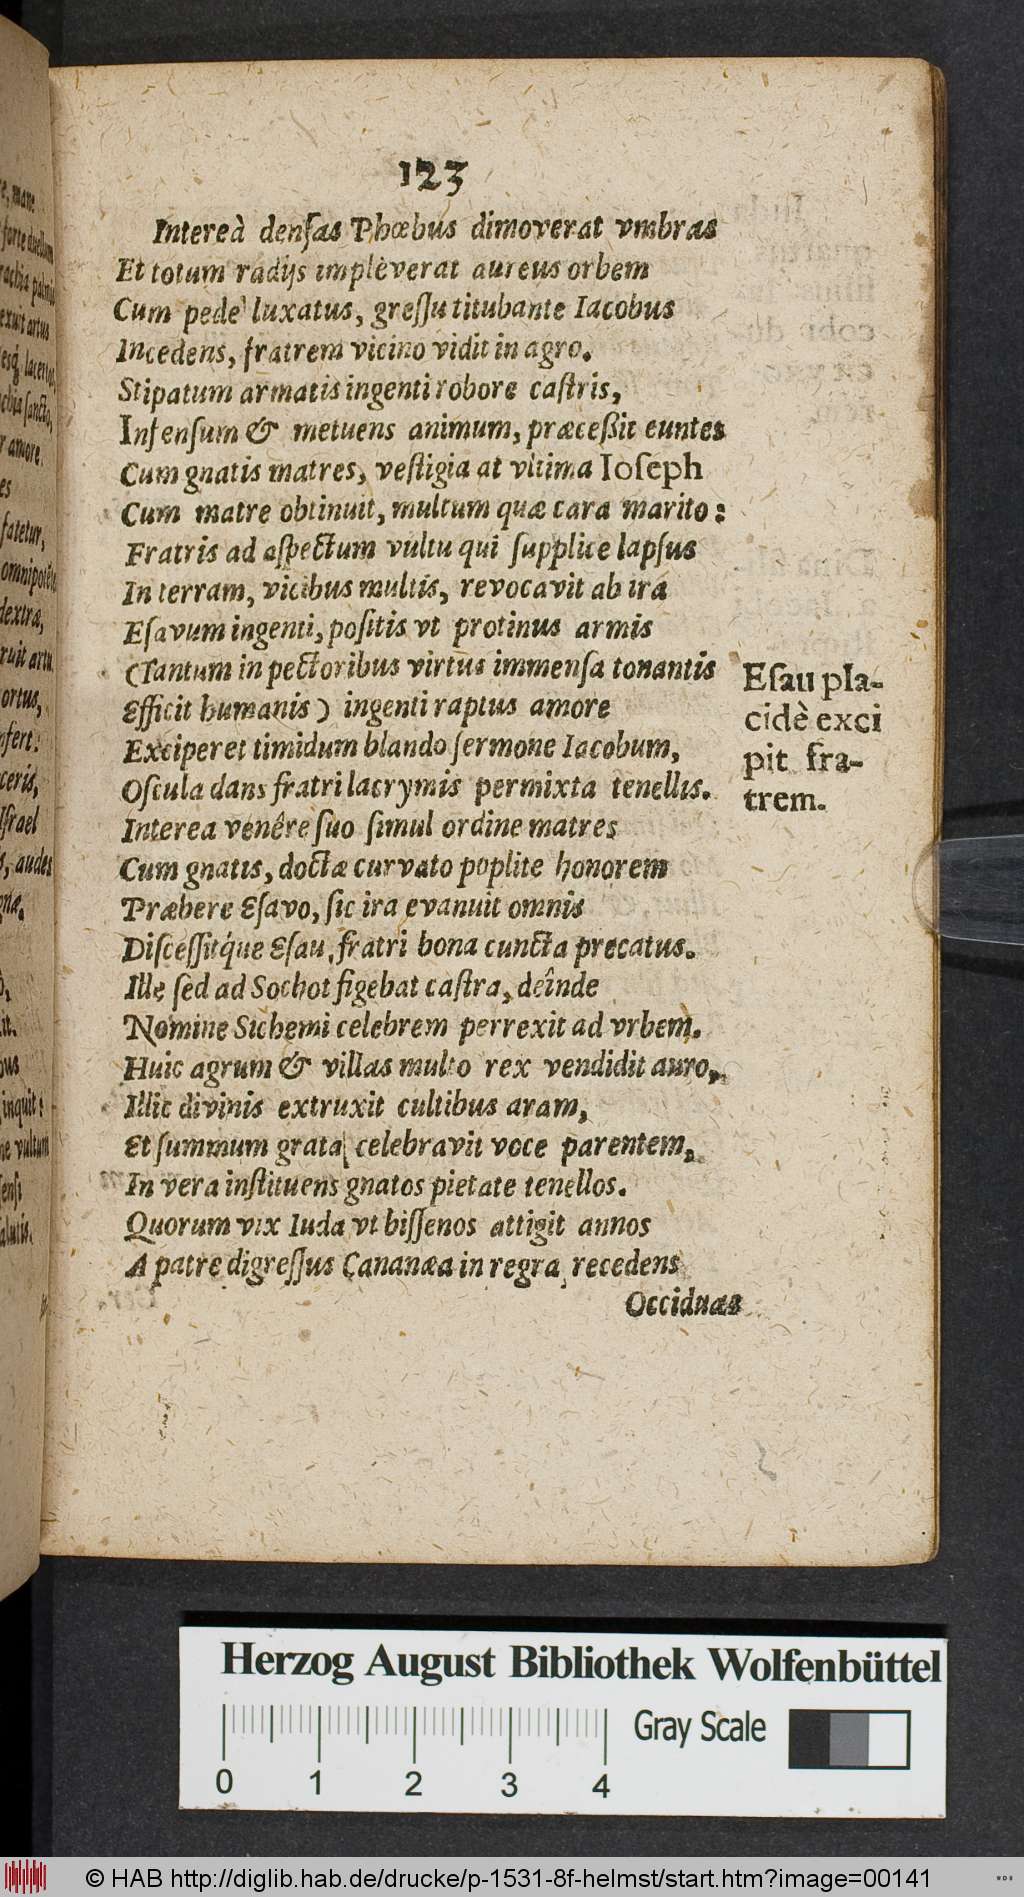 123
Intereà denſas Phœbus dimoverat vmbras
Et totum radijs implèverat aureus orbem
Cum pede luxatus, greſſu titubante Iacobus
Incedens, fratrem vicino vidit in agro.
Stipatum armatis ingenti robore caſtris,
Infenſum & metuens animum, præceßit euntes
Cum gnatis matres, veſtigia at vltima Ioſeph
Cum matre obtinuit, multum quæ cara marito:
Fratris ad aſpectum vultu qui ſupplice lapſus
In terram, vicibus multis, revocavit ab ira
Eſavum ingenti, poſitis vt protinus armis
(Tantum in pectoribus virtus immenſa tonantis
Efficit humanis) ingenti raptus amore
Exciperet timidum blando ſermone Iacobum,
Oſcula dans fratri lacrymis permixta tenellis.
Eſau pla-
cidè exci
pit fra-
trem.
Interea venêre ſuo ſimul ordine matres
Cum gnatis, doctæ curvato poplite honorem
Præbere Eſavo, ſic ira evanuit omnis
Diſceſſitq́ue Eſau, fratri bona cuncta precatus.
Ille ſed ad Sochot figebat caſtra, deînde
Nomine Sichemi celebrem perrexit ad vrbem.
Huic agrum & villas multo rex vendidit auro,
Illic divinis extruxit cultibus aram,
Et ſummum grata celebravit voce parentem,
In vera inſtituens gnatos pietate tenellos.
Quorum vix Iuda vt biſſenos attigit annos
A patre digreſſus Cananæa in regra recedens
Occiduas
Herzog August Bibliothek Wolfenbüttel
0 1 2 3 4
Gray Scale
© HAB http://diglib.hab.de/drucke/p-1531-8f-helmst/start.htm?image=00141